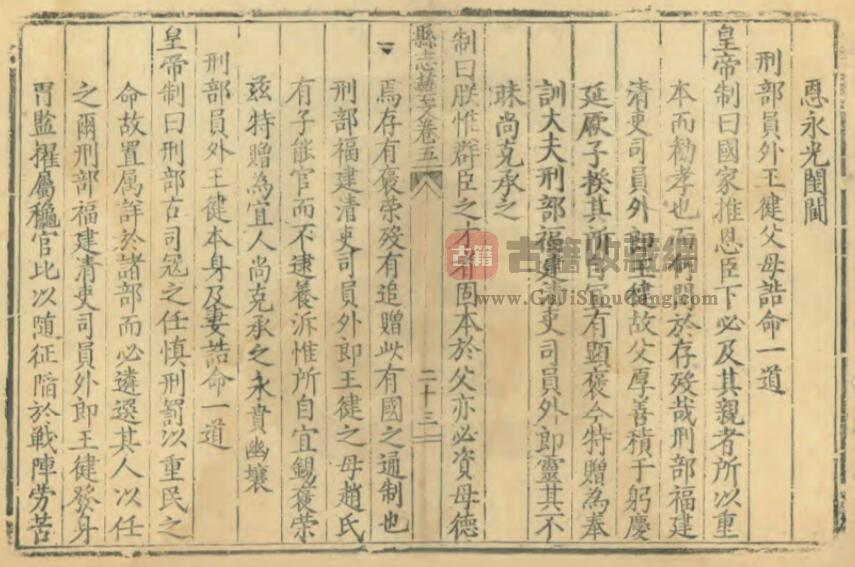 恩永光閨閫
刑部員外王健父母誥命一道
皇帝制曰國家推恩臣下必及其親者所以重
本而勸孝也而何間於存歿哉刑部福建
清吏司員外郎王健故父厚善積于躬慶
延厥子揆其所自宜有顯褒今特贈為奉
訓大夫刑部福建清吏司員外郎靈其不
昧尚克承之
制曰朕惟群臣之才者固本於父亦必資母德
縣志藝文卷五
二十三
焉存有褒榮歿有追贈此有國之通制也
刑部福建清吏司員外郎王健之母趙氏
有子能官而不逮養泝惟所自宜錫褒榮
茲特贈為宜人尚克承之永賁幽壤
刑部員外王健本身及妻誥命一道
皇帝制曰刑部古司冦之任慎刑罰以重民之
命故置属詳於諸部而必遴選其人以任
之爾刑部福建清吏司員外郎王健發身
胄監擢屬穐官比以随征陷於戰陣劳苦
古籍
古籍收藏網
www.GuJiShouCang.com